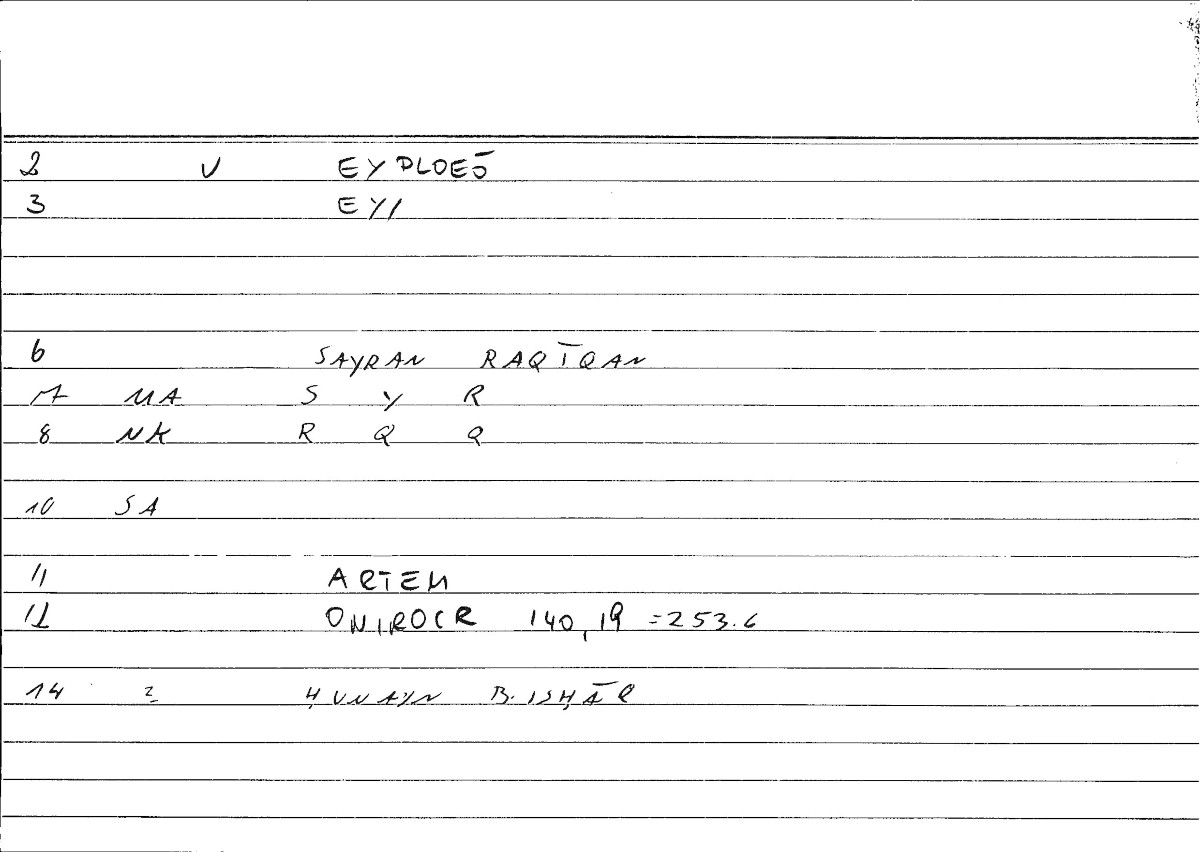 2 V EYPLOEŌ
3 EY/
6 SAYRAN RAQĪQAN
7 MA S Y R
8 NK R Q Q
10 SA
11 ARTEM
12 ONIROCR 140,19 =253.6
14 2 ḤUNAYN B. ISḤĀQ